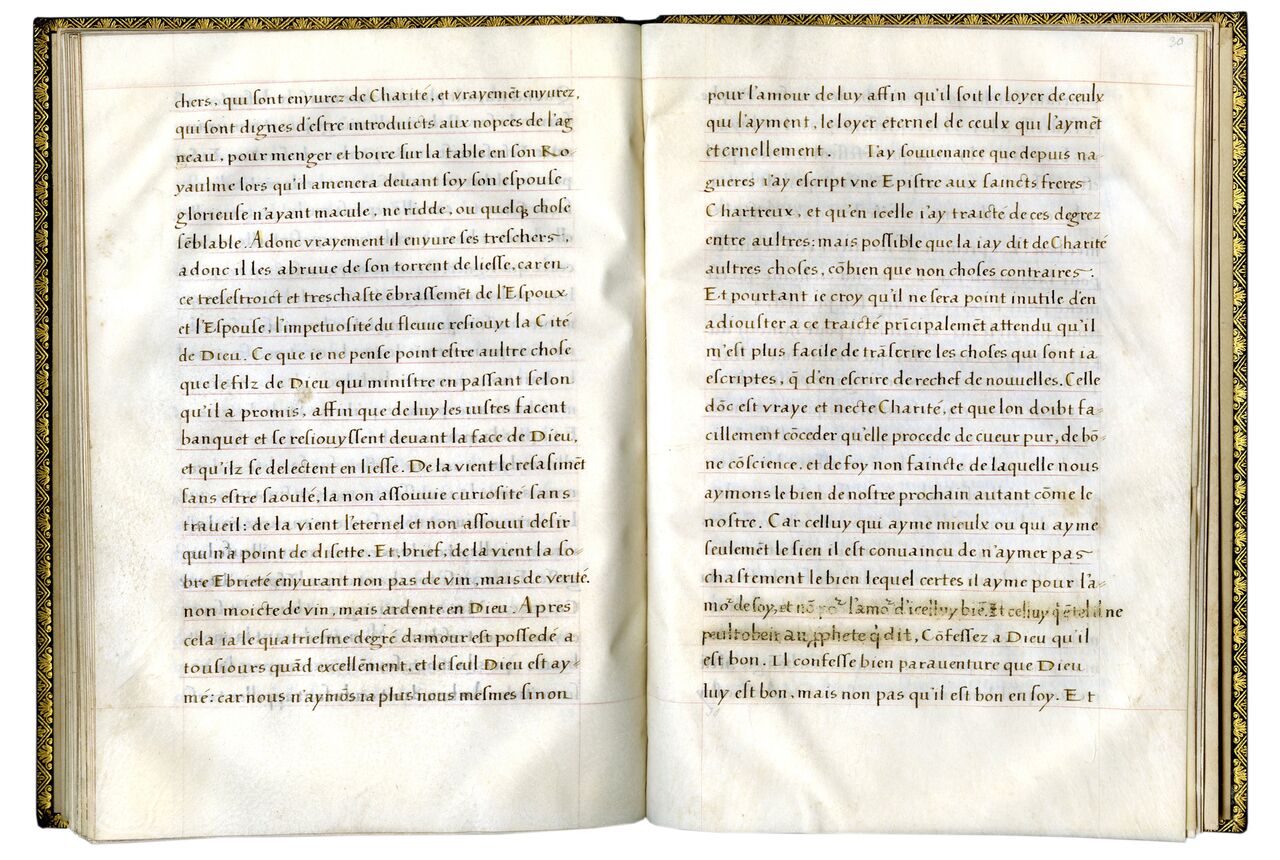 chers, qui sont enyurez de Charité, et vrayemēt enyurez,
qui sont dignes d'estre introduicts aux nopces de l'ag
neau, pour menger et boire sur la table en son Ro-
yaulme lors qu'il amenera deuant soy son espouse
glorieuse n'ayant macule, ne ridde, ou quelq; chose
sēblable. Adonc vrayement il enyure ses treschers,
adonc il les abruue de son torrent de liesse, car en
ce tresestroict et treschaste ēbrassemēt de l'Espoux
et l'Espouse, l'impetuosité du fleuue resiouyt la Cité
de Dieu. Ce que ie ne pense point estre aultre chose
que le filz de Dieu qui ministre en passant selon
qu'il a promis, affin que de luy les iustes facent
banquet et se resiouyssent deuant la face de Dieu,
et qu'ilz se delectent en liesse. De la vient le resasimēt
sans estre saoulé, la non assouuie curiosité sans
traueil: de la vient l'eternel et non assouui desir
qui n'a point de disette. Et, brief, de la vient la so-
bre Ebrieté enyurant non pas de vin, mais de verité.
non moicte de vin, mais ardente en Dieu. Apres
cela ia le quatriesme degré damour est possedé a
tousiours quād excellēment, et le seul Dieu est ay-
mé: car nous n'aymōs ia plus nous mesmes sinon
30
pour l'amour de luy affin qu'il soit le loyer de ceulx
qui l'ayment, le loyer eternel de ceulx qui l'aymēt
eternellement. I'ay souuenance que depuis na-
gueres i'ay escript vne Epistre aux saincts freres
Chartreux, et qu'en icelle i'ay traicté de ces degrez
entre aultres: mais possible que la iay dit de Charité
aultres choses, cōbien que non choses contraires:
Et pourtant ie croy qu'il ne sera point inutile d'en
adiouster a ce traicté prīcipalemēt attendu qu'il
m'est plus facile de trāscrire les choses qui sont ia
escriptes, q̄ d'en escrire de rechef de nouuelles. Celle
dōc est vraye et necte Charité, et que lon doibt fa-
cillement cōceder qu'elle procede de cueur pur, de bō-
ne cōscience, et de foy non faincte de laquelle nous
aymons le bien de nostre prochain autant cōme le
nostre. Car celluy qui ayme mieulx ou qui ayme
seulemēt le sien il est conuaincu de n'aymer pas
chastement le bien lequel certes il ayme pour l'a-
moʳ de soy, et nō poʳ l'amoʳ d'icelluy biē. Et celluy q̄ ē tel il ne
peult obeir au ꝓphete q̄ dit, Cōfessez a Dieu qu'il
est bon. Il confesse bien parauenture que Dieu
luy est bon, mais non pas qu'il est bon en soy. Et